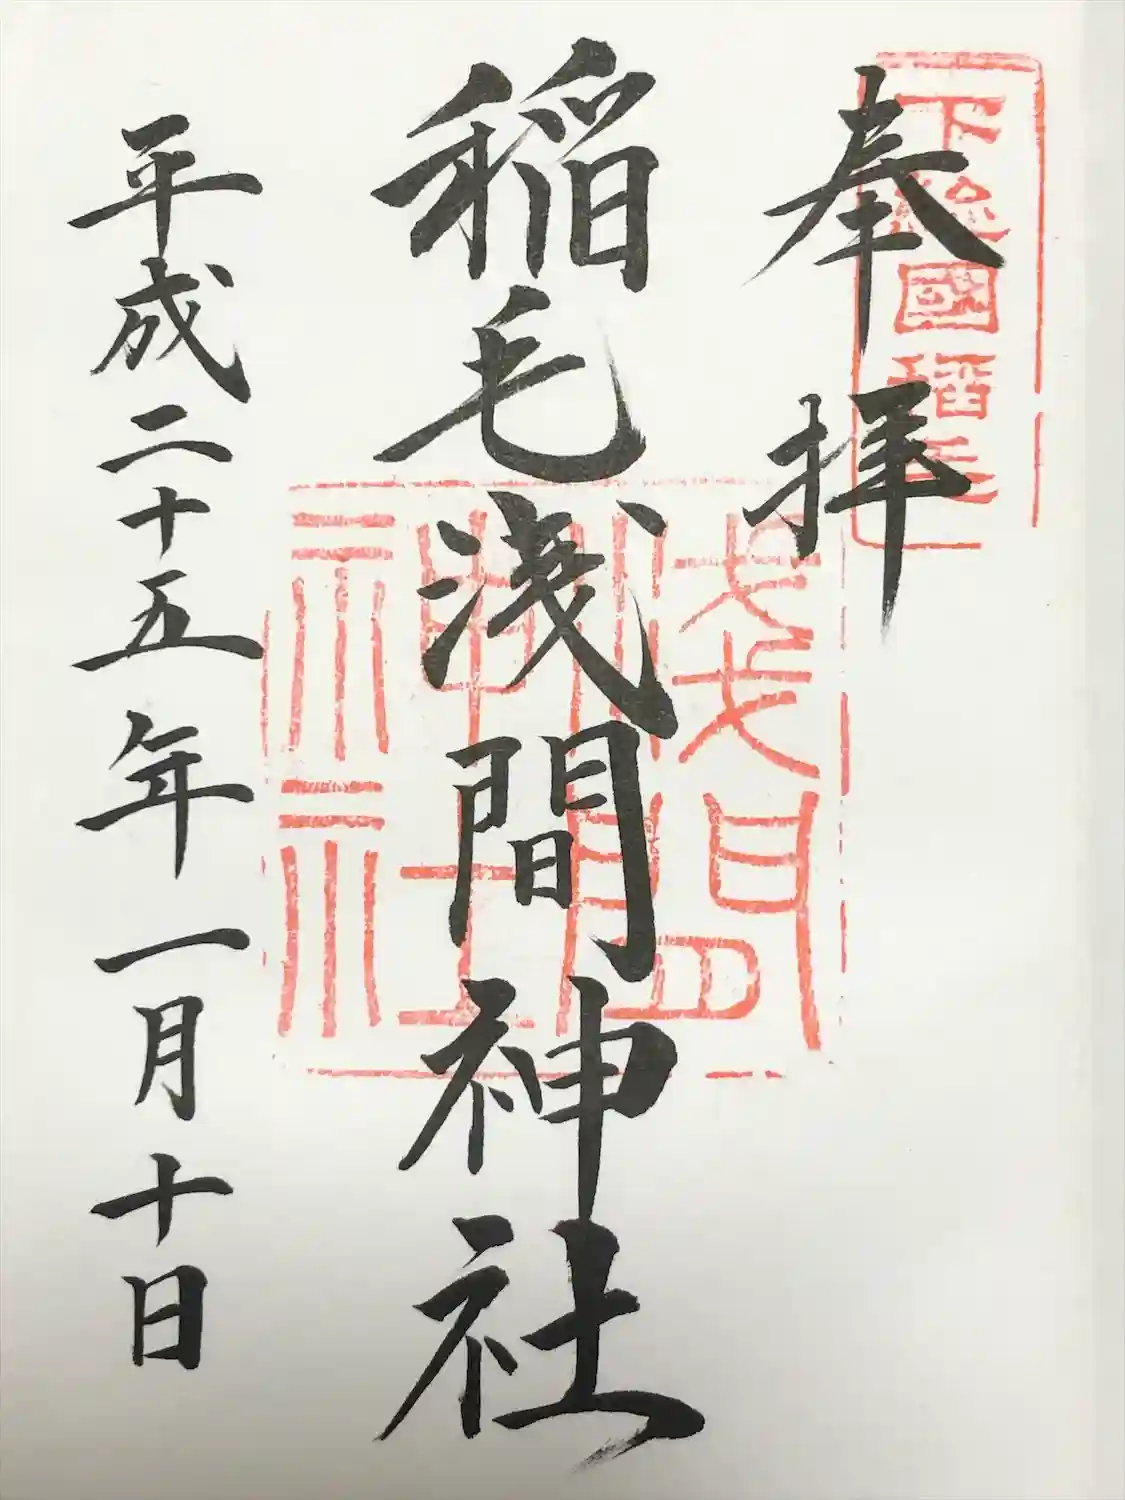 奉拝
下総國稲毛
稲毛浅間神社
浅間神社
平成二十五年一月十日